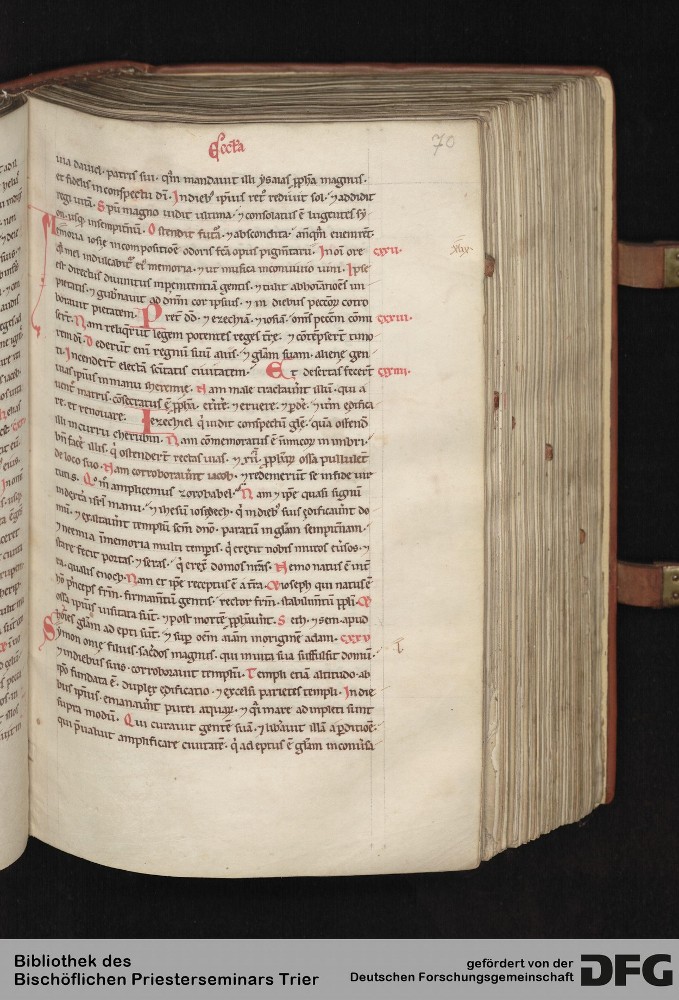 Eccła
70
uia dauid · patris sui · qm̅ mandauit illi ysaias ꝓpha magnus ·
et fidelis in conspectu dn̅i · In dieb; ipsius retro rediuit sol · ⁊ addidit
regi uitā · Spū magno uidit ultima · ⁊ consolatus ē lugentes sy
on · usq; in sempit̅nū · Ostendit futa · ⁊ abscondita · anteqm̅ euenirēt
Memoria iosie in compositione odoris fc̄a opus pigmtarii · In oi̅ ore cxxii ·
qͣ mel indulcabit̅ ei̅ memoria · ⁊ ut musica in conuiuio uini · Ipse
est directus diuinitus in penitentiā gentis · ⁊ tulit abhoiationes im
pietatis · ⁊ gub̅nauit ad dn̅m cor ipsius · ⁊ in dieb; peccoꝝ corro
borauit pietatem · Pret̅ dd̅ · ⁊ ezechiā · ⁊ iosiā · om̅s pecc̄m com̅i cxxiii ·
ser̅t · Nam reliqrūt legem potentes reges · ⁊ contēpser̅t timo
rem dī · Dederunt enī regnū suū aliis · ⁊ gl̅am suam · aliene gen
ti · Incenderunt electā sc̅itatis ciuitatem · Et desertas fecer̅t cxxiiii ·
uias ipsius in manu iheremie · Nam male tractauerūt illū · qui a
uentre matris · cōsecratus ē ꝓpha · eruere · ⁊ perdere · ⁊ itm edifica
re · et renouare · Iezechiel q̇ uidit conspectū gl̅e · quā ostend
illi in curru cherubin · Nam cōmemoratus ē inimicoꝝ in imbri ·
bn̅facere illis · q̇ ostender̅t rectas uias · ⁊ xii · ꝓph̅aꝝ ossa pullulēt
de loco suo · Nam corroborauer̅t iacob · ⁊ redemerūt se in fide uir
tutis · Qm̅ amplificemus zorobabel · Nam ⁊ ipse quasi signū
in dextra isrl̅ manu · ⁊ ihesum iosedech · q̇ in dieb; suis edificauer̅t do
mū · ⁊ exaltauer̅t templū sc̅m dn̅o · paratū in gl̅am sempit̅nam ·
⁊ neemia in memoria multi temporis · q̇ erexit nobis muros euersos · ⁊
stare fecit portas · ⁊ seras · q̇ erexit domos nr̅as · Nemo natus ē in tr̅
ra · qualis enoch · Nam et ipse receptus ē a t̅ra · ioseph qui natus ē
hō princeps fr̅m · firmamtū gentis · rector fr̅m · stabilimtū ppl̅i ·
ossa ipsius uisitata sūt · ⁊ post mortē ꝓph̅auer̅t · Seth · ⁊ sem · apud
hoīes gl̅am adepti sūt · ⁊ sup oem aīam in origine adam · cxxv
Symon onie filius · sac̅dos magnus · qui in uita sua suffulsit domū ·
⁊ in dieb; suis · corroborauit templū · Templi etiā altitudo · ab
ipso fundata ē · duplex edificatio · ⁊ excelsi parietes templi · In die
bus ipsius · emanauer̅t putei aquaꝝ · ⁊ qͣ mare adimpleti sunt
supra modū · Qui curauit gentē suā · ⁊ liberauit illā a ꝑditione ·
qui p̅ualuit amplificare ciuitatē · q̇ adeptus ē gl̅am in conuersa
Bibliothek des
Bischöflichen Priesterseminars Trier
gefördert von der
Deutschen Forschungsgemeinschaft
DFG